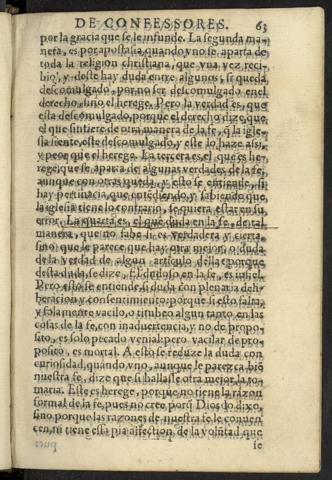 DE CONFESSORES. 63
por la gracia que se le infunde. La segunda ma-
nera, es por apostasia, quando vno se aparta de
toda la religion christiana, que vna vez reci-
bio, y deste hay duda entre algunos, si queda
descomulgado, por no ser descomulgado en el
derecho, sino el herege. Pero la verdad es, que
esta descomulgado, porque el derecho dize, que
el que sintiere de otra manera de la fe, q̃ la igle-
sia siente, este descomulgado, y este lo haze assi,
y peor que el herege. La tercera es, el que es he-
rege, que se aparta de algunas verdades de la fe,
aunque con otras queda, y esto se entiende, si
hay pertinacia, que entediendo, y sabiendo que
la iglesia tiene lo contrario, se quiera estar en su
error. La quarta es, el que duda en la fe, de tal
manera, que no sabe si es verdadera y cierta,
sino que le parece que hay otra mejor, o duda
de la verdad de algun articulo della: porque
desta duda, se dize, El dudoso en la fe, es infiel.
Pero esto se entiende, si duda con plenaria deli-
beracion y consentimiento: porque si esto falta,
y solamente vacilo, o titubeo algun tanto en las
cosas de la fe, con inaduertencia, y no de propo-
sito, es solo pecado venial: pero vacilar de pro-
posito, es mortal. A esto se reduze la duda con
curiosidad, quando vno, aunque le parezca biẽ
nuestra fe, dize que si hallasse otra mejor, la to-
maria. Este es herege, por que no tiene la razon
formal de la fe, pues no cree porq̃ Dios lo dixo,
sino porque las razones de nuestra fe le conuen-
cen, ni tiene esta pia affection de la volũtad que
se